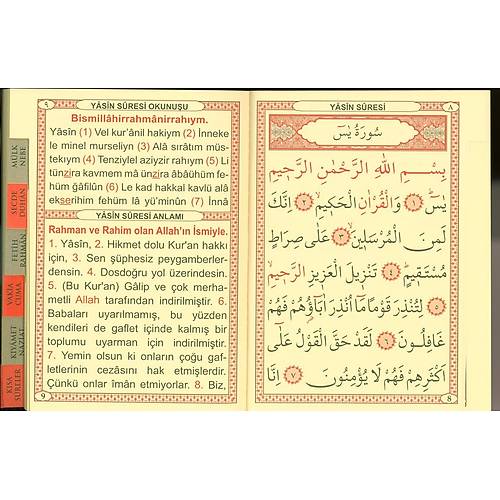 ٩
YÂSİN SÛRESİ OKUNUŞU
Bismillâhirrahmânirrahıym.
Yâsîn (1) Vel kur'ânil hakiym (2) İnneke
le minel murseliyn (3) Alâ sırâtım müs-
tekıym (4) Tenziylel aziyzir rahıym (5) Li
tünzira kavmem mâ ünzira âbâühüm fe-
hüm gâfilûn (6) Le kad hakkal kavlü alâ
ekserihim fehüm lâ yü'minûn (7) İnnâ
YÂSİN SÛRESİ ANLAMI
Rahman ve Rahim olan Allah'ın İsmiyle.
1. Yâsîn, 2. Hikmet dolu Kur'an hakkı
için, 3. Sen şüphesiz peygamberler-
densin. 4. Dosdoğru yol üzerindesin.
5. (Bu Kur'an) Gâlip ve çok merha-
metli Allah tarafından indirilmiştir. 6.
Babaları uyarılmamış, bu yüzden
kendileri de gaflet içinde kalmış bir
toplumu uyarman için indirilmiştir.
7. Yemin olsun ki onların çoğu gaf-
letlerinin cezasını hak etmişlerdir.
Çünkü onlar îmân etmiyorlar. 8. Biz,
9
MÜLK
NEBE
SECDE
DUHAN
FETİH
RAHMAN
VAKIA
CUMA
KIYAMET
NAZİAT
KISA
SURELER
٨
YÂSİN SÛRESİ
سُورَةُ يٰسٓ
بِسْمِ اللهِ الرَّحْمٰنِ الرَّحِيمِ
يٰسٓ ﴿١﴾ وَالْقُرْاٰنِ الْحَكِيمِ ﴿٢﴾ اِنَّكَ
لَمِنَ الْمُرْسَلِينَ ﴿٣﴾ عَلٰى صِرَاطٍ
مُسْتَقِيمٍ ﴿٤﴾ تَنْزِيلَ الْعَزِيزِ الرَّحِيمِ
﴿٥﴾ لِتُنْذِرَ قَوْمًا مَٓا اُنْذِرَ اٰبَٓاؤُهُمْ فَهُمْ
غَافِلُونَ ﴿٦﴾ لَقَدْ حَقَّ الْقَوْلُ عَلٰٓى
اَكْثَرِهِمْ فَهُمْ لَا يُؤْمِنُونَ ﴿٧﴾ اِنَّا
8